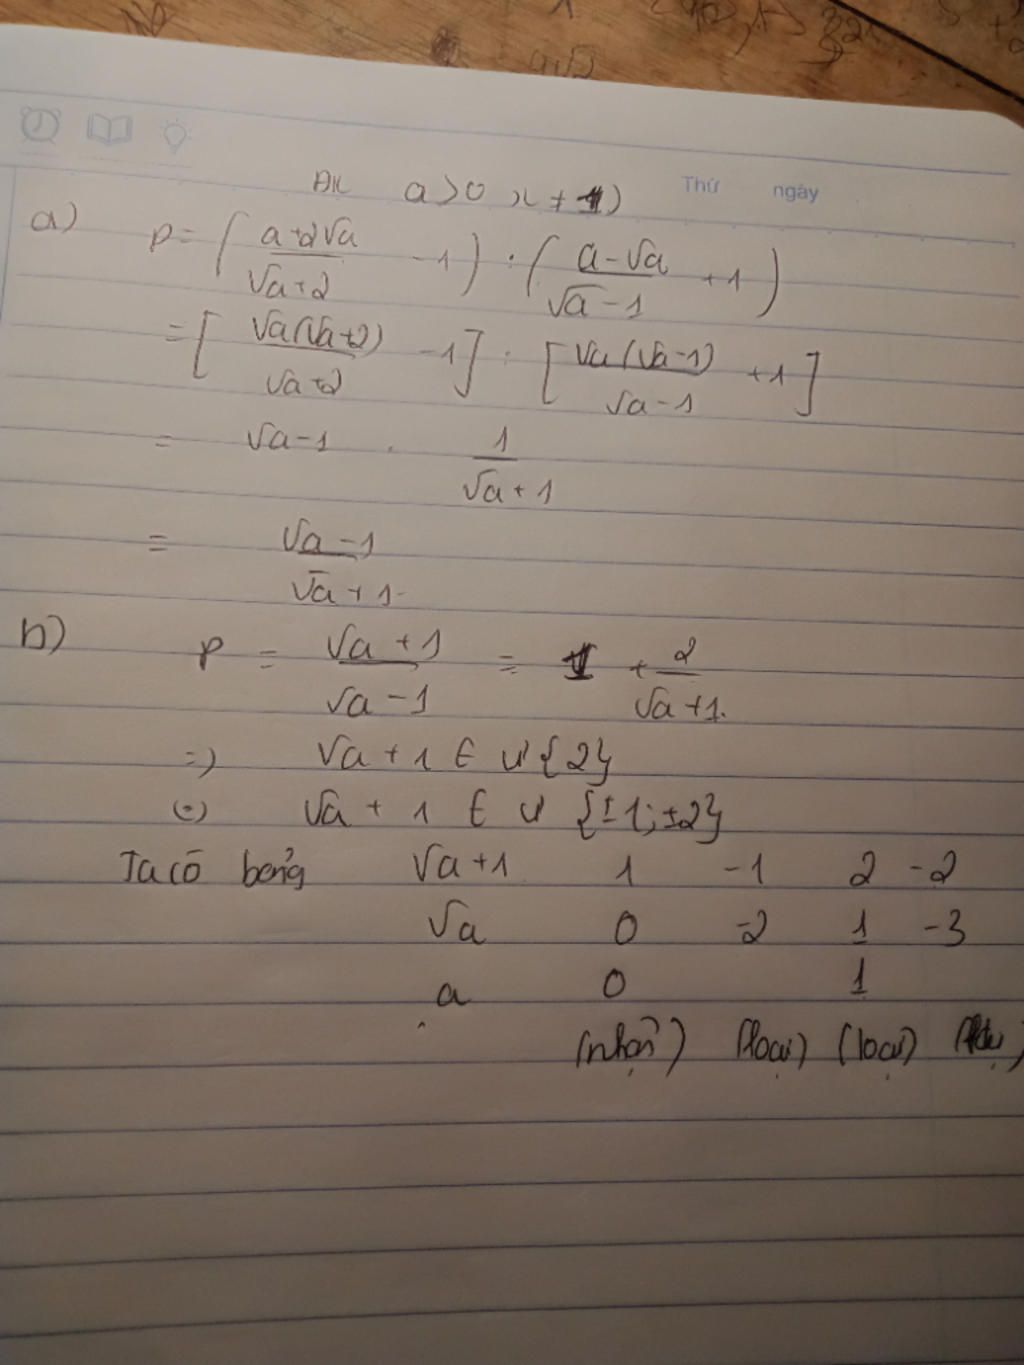 Thứ ngày
ĐK a>0 x ≠ 1)
a) P = ( (a+2√a)/(√a+2) - 1 ) : ( (a-√a)/(√a-1) + 1 )
= [ (√a(√a+2))/(√a+2) - 1 ] : [ (√a(√a-1))/(√a-1) + 1 ]
= √a-1 . 1/(√a+1)
= (√a-1)/(√a+1)
b) P = (√a+1)/(√a-1) = 1 + 2/(√a+1).
=) √a+1 ∈ Ư{2}
(=) √a+1 ∈ Ư {±1;±2}
Ta có bảng √a+1 1 -1 2 -2
√a 0 -2 1 -3
a 0 1
(nhận) (loại) (loại)